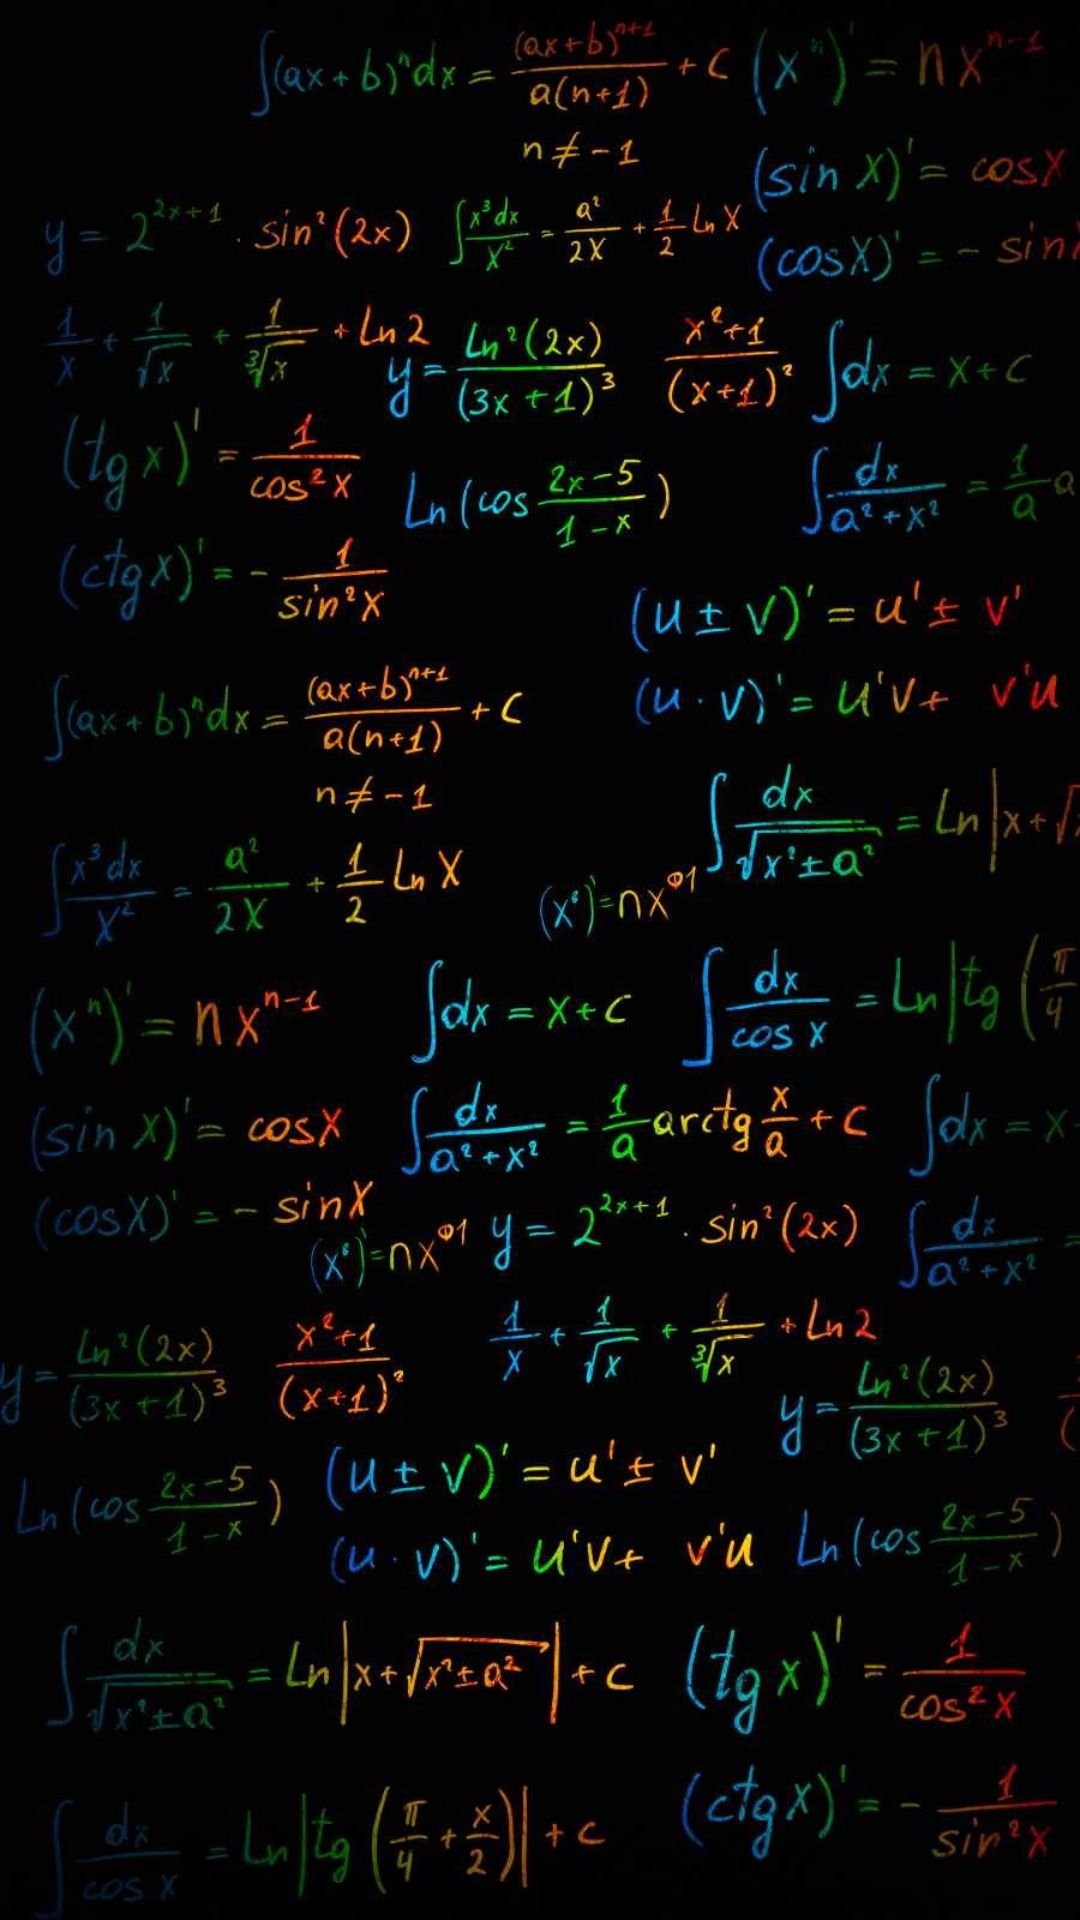 ∫(ax+b)ⁿdx = (ax+b)ⁿ⁺¹/a(n+1) + C
n ≠ -1
(xⁿ)' = nxⁿ⁻¹
(sin X)' = cosX
(cosX)' = - sin
y = 2²ˣ⁺¹ · sin²(2x)
∫x³dx/X² = a²/2X + 1/2 Ln X
1/x + 1/√x + 1/∛x + Ln2
y = Ln²(2x)/(3x+1)³
x²+1/(x+1)²
∫dx = X+C
(tg x)' = 1/cos²x
Ln(cos 2x-5/1-x)
∫dx/a²+x² = 1/a a
(ctg x)' = - 1/sin²x
(u ± v)' = u' ± v'
(u · v)' = u'v + v'u
∫(ax+b)ⁿdx = (ax+b)ⁿ⁺¹/a(n+1) + C
n ≠ -1
∫dx/√x²±a² = Ln|x+√
∫x³dx/X² = a²/2X + 1/2 Ln X
(xⁿ)' = nxⁿ⁻¹
∫dx = X+C
∫dx/cos x = Ln|tg(π/4
(sin X)' = cosX
∫dx/a²+x² = 1/a arctg x/a + C
∫dx = X
(cosX)' = - sinX
y = 2²ˣ⁺¹ · sin²(2x)
∫dx/a²+x² =
y = Ln²(2x)/(3x+1)³
x²+1/(x+1)²
1/x + 1/√x + 1/∛x + Ln2
y = Ln²(2x)/(3x+1)³
Ln(cos 2x-5/1-x)
(u ± v)' = u' ± v'
(u · v)' = u'v + v'u
Ln(cos 2x-5/1-x)
∫dx/√x²±a² = Ln|x+√x²±a²| + C
(tg x)' = 1/cos²x
∫dx/cos x = Ln|tg(π/4 + x/2)| + C
(ctg x)' = - 1/sin²x